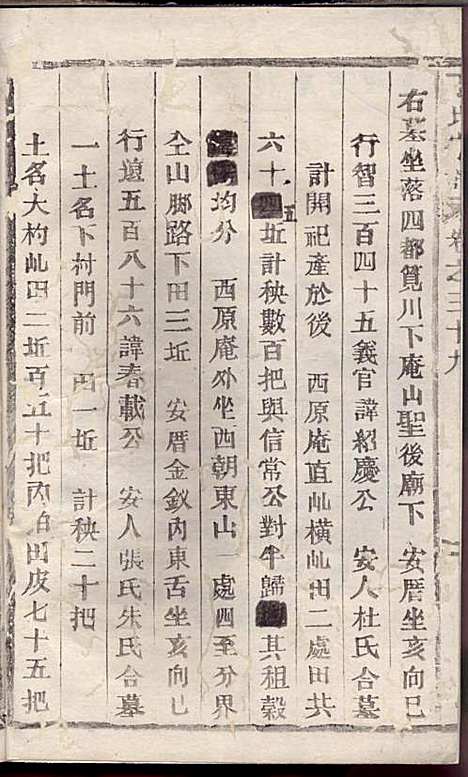 卷之三十九
右墓坐落四都筧川下庵山聖後廟下　安厝坐亥向巳
行智三百四十五義官諱紹慶公　安人杜氏合墓
計開祀產於後　西原庵直屾橫屾田二處田共
六十五坵計秧數百把與信常公對半歸其租穀
均分　西原庵外坐西朝東山一處四至分界
仝山腳路下田三坵　安厝金釵內東舌坐亥向巳
行道五百八十六諱春載公　安人張氏朱氏合墓
一土名下村門前　田一坵　計秧二十把
土名大杓屾田二坵百五十把內泊田皮七十五把